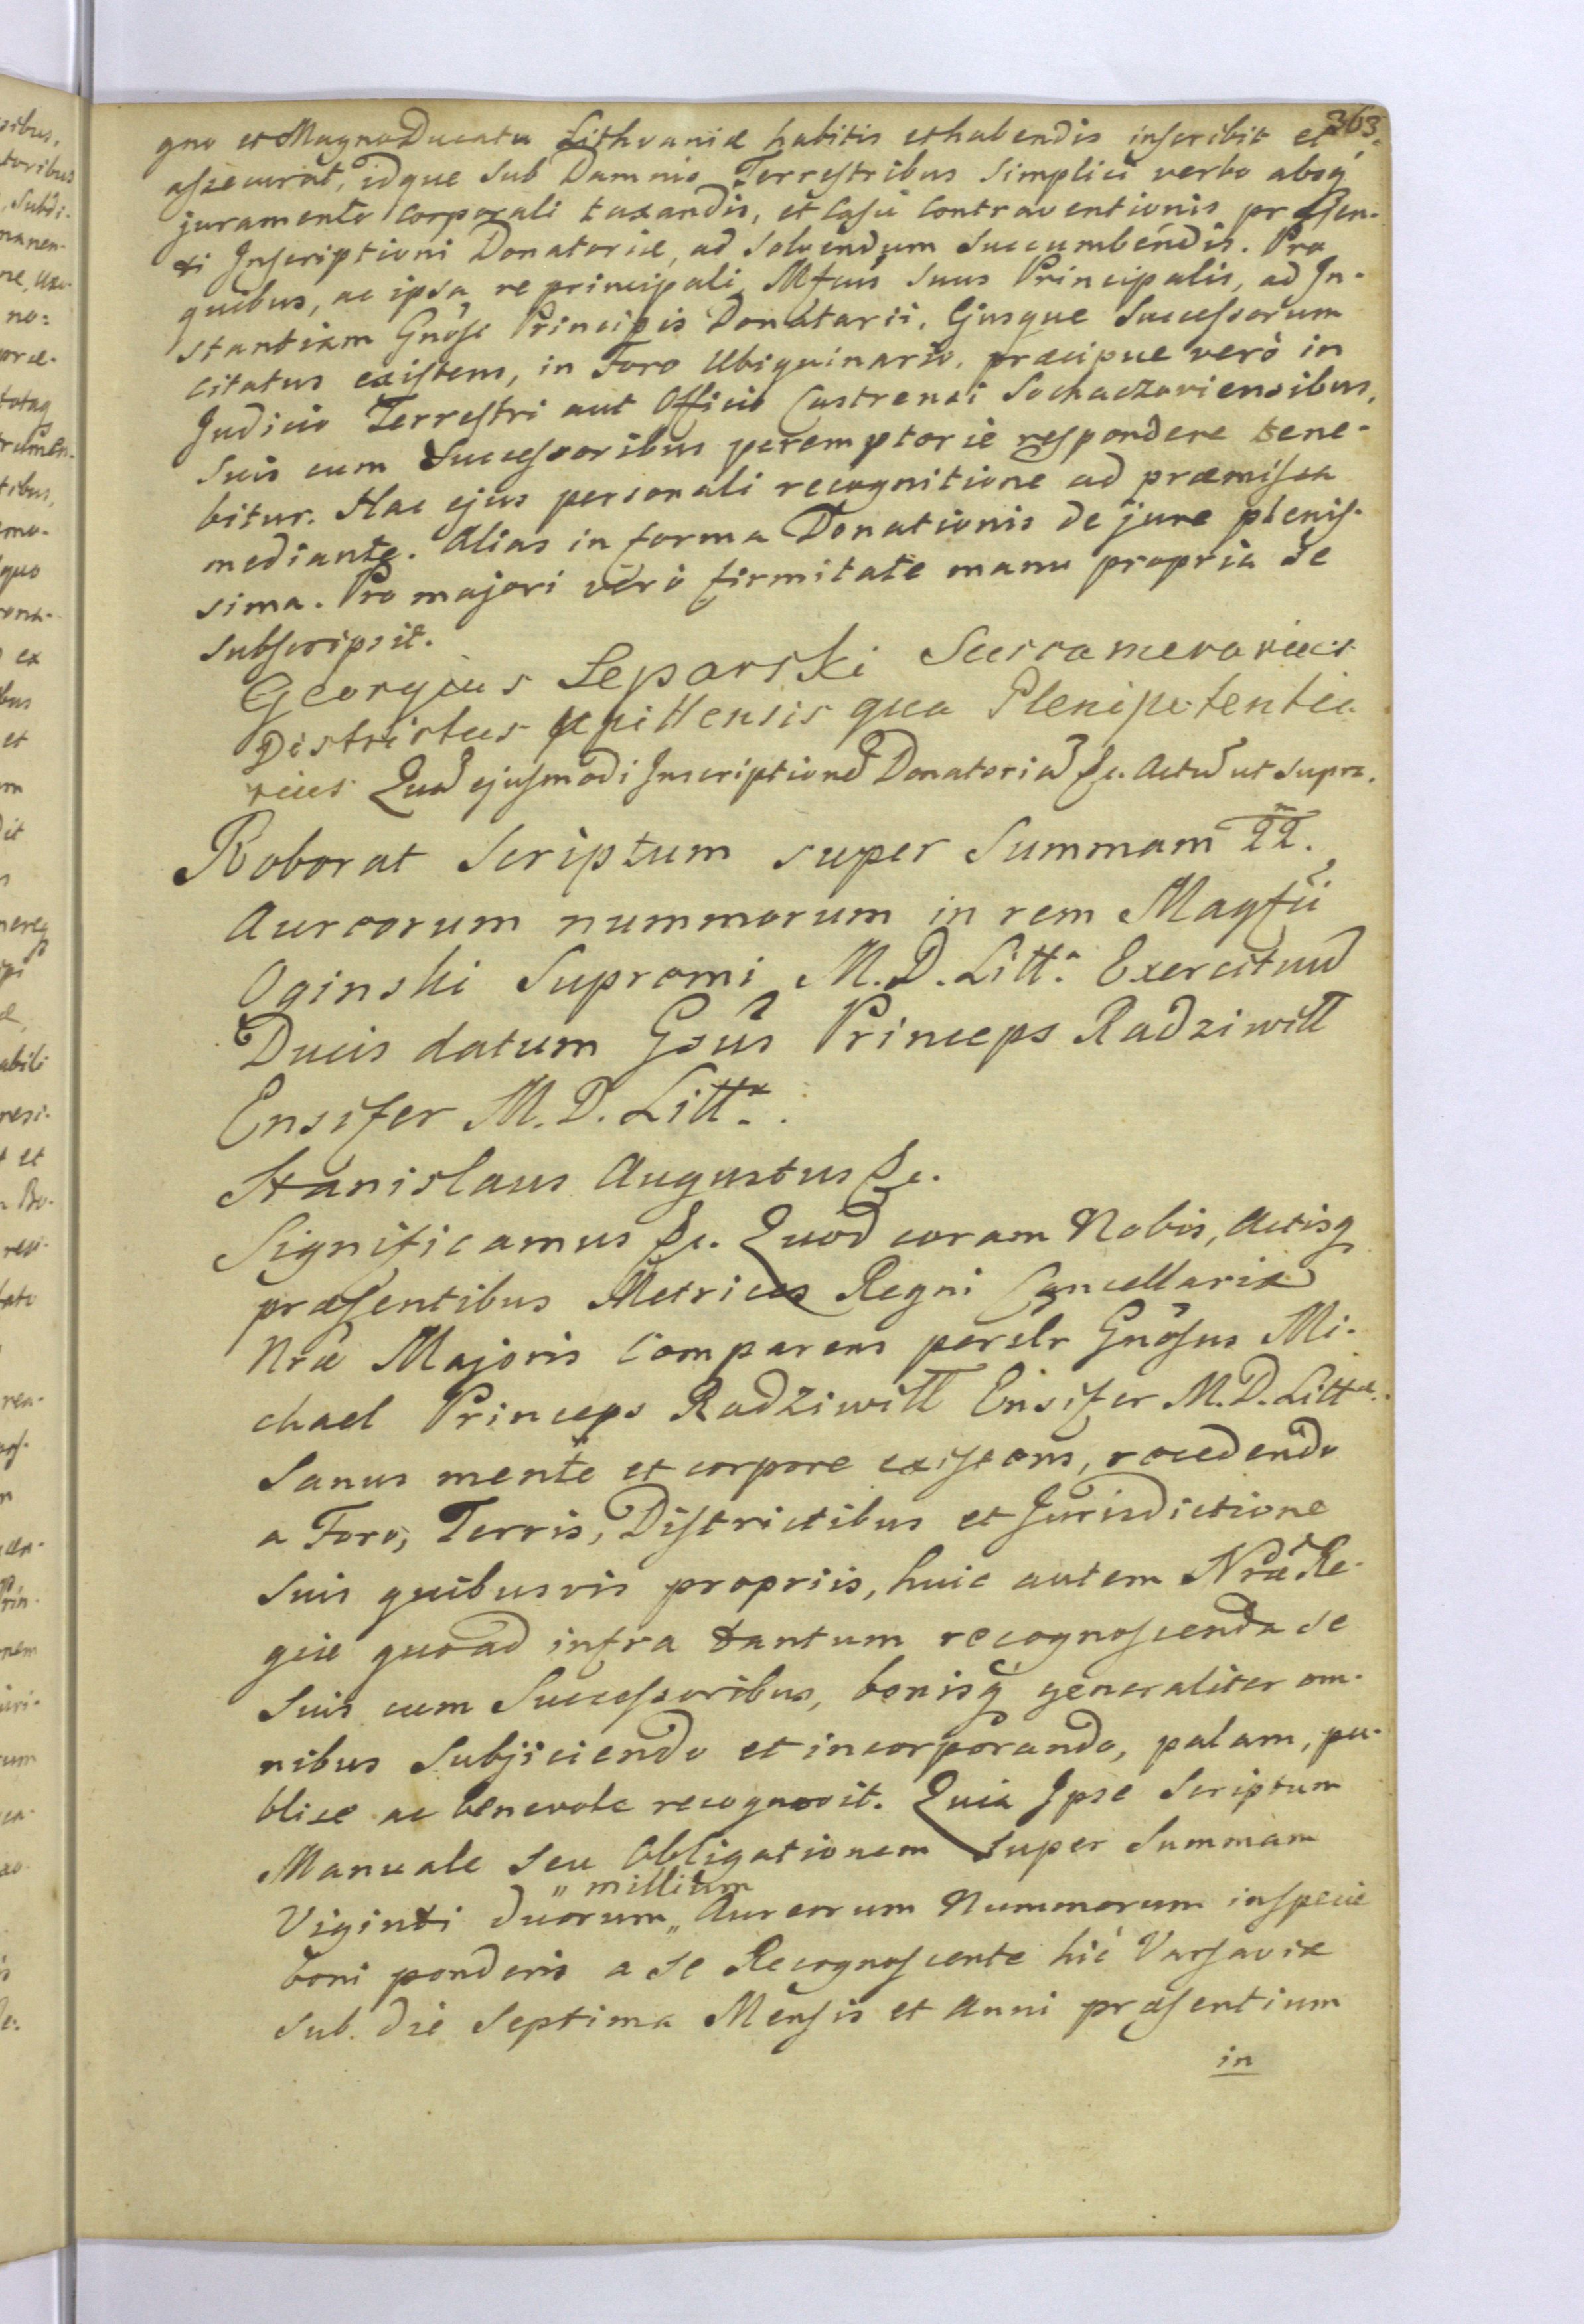 363.
gno et Magno Ducatu Lithvaniæ habitis et habendis inscribit et
assecurat, idque sub Damnis Terrestribus simplici verbo absq́
juramento corporali taxandis, et casu contraventionis præsen-
ti Inscriptioni Donatoriæ, ad solvendum succumbendis. Pro
quibus, ac ipsa re principali, Mfcus suus Principalis, ad In-
stantiam Gnosi Principis Donatarii, Ejusque Successorum
citatus existens, in Foro Ubiquinario, præcipue verò in
Judicio Terrestri aut Officio Castrensi Sochaczoviensibus,
suis cum Successoribus peremptorie respondere tene-
bitur. Hac ejus personali recognitione ad præmissa
mediante. Alias in forma Donationis de jure plenis-
sima. Pro majori verò firmitate manu propria se
subscripsit.
Georgius Leparski Succamerarius
Districtus Upittensis qua Plenipotentia
rius Quad ejusmodi Inscriptione Donatoria &c. Actu ut supra.
Roborat Scriptum super Summam 22.m
Aureorum nummorum in rem Magfci
Oginski Supremi M. D. Litt.æ Exercituu
Ducis datum Gsus Princeps Radziwill
Ensifer M. D. Litt.æ
Stanislaus Augustus &c.
Significamus &c. Quod coram Nobis, Actisq
præsentibus Metrices Regni Cancellariæ
Nræ Majoris Comparens perslr Gnosus Mi-
chael Princeps Radziwill Ensifer M. D. Littæ.
Sanus mente et corpore existens, recedendo
a Foro, Terris, Districtibus et Jurisdictione
suis quibusvis propriis, huic autem Nræ Re-
giæ quoad infra tantum recognoscenda se
suis cum Successoribus, bonisq́ generaliter om-
nibus subjiciendo et incorporando, palam, pu-
blice ac benevole recognovit. Quia Ipse Scriptum
Manuale seu Obligationem super Summam
Viginti duorum „ millium „ Aureorum Nummorum in specie
boni ponderis a se Recognoscente hic Varsaviæ
sub. die Septima Mensis et Anni præsentium
in